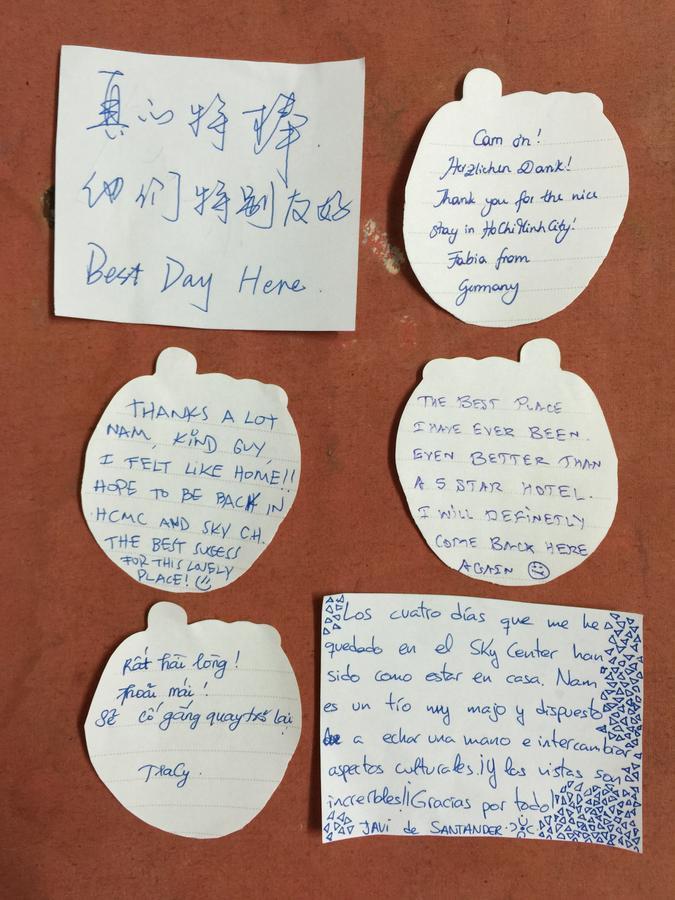 真心特棒.
他们特别友好
Best Day Here.
Cảm ơn!
Herzlichen Dank!
Thank you for the nice
stay in HoChiMinhCity!
Fabia from
Germany
THANKS A LOT
NAM, KIND GUY,
I FELT LIKE HOME!!
HOPE TO BE BACK IN
HCMC AND SKY CH.
THE BEST SUCESS
FOR THIS LOVELY
PLACE! ☺
THE BEST PLACE
I HAVE EVER BEEN.
EVEN BETTER THAN
A 5 STAR HOTEL.
I WILL DEFINETLY
COME BACK HERE
AGAIN ☺
Rất hài lòng!
Thoải mái!
Sẽ cố gắng quay trở lại
Tracy.
Los cuatro días que me he
quedado en el Sky Center han
sido como estar en casa. Nam
es un tío muy majo y dispuesto
a echar una mano e intercambiar
aspectos culturales. ¡Y las vistas son
increíbles!¡Gracias por todo!
JAVI de SANTANDER